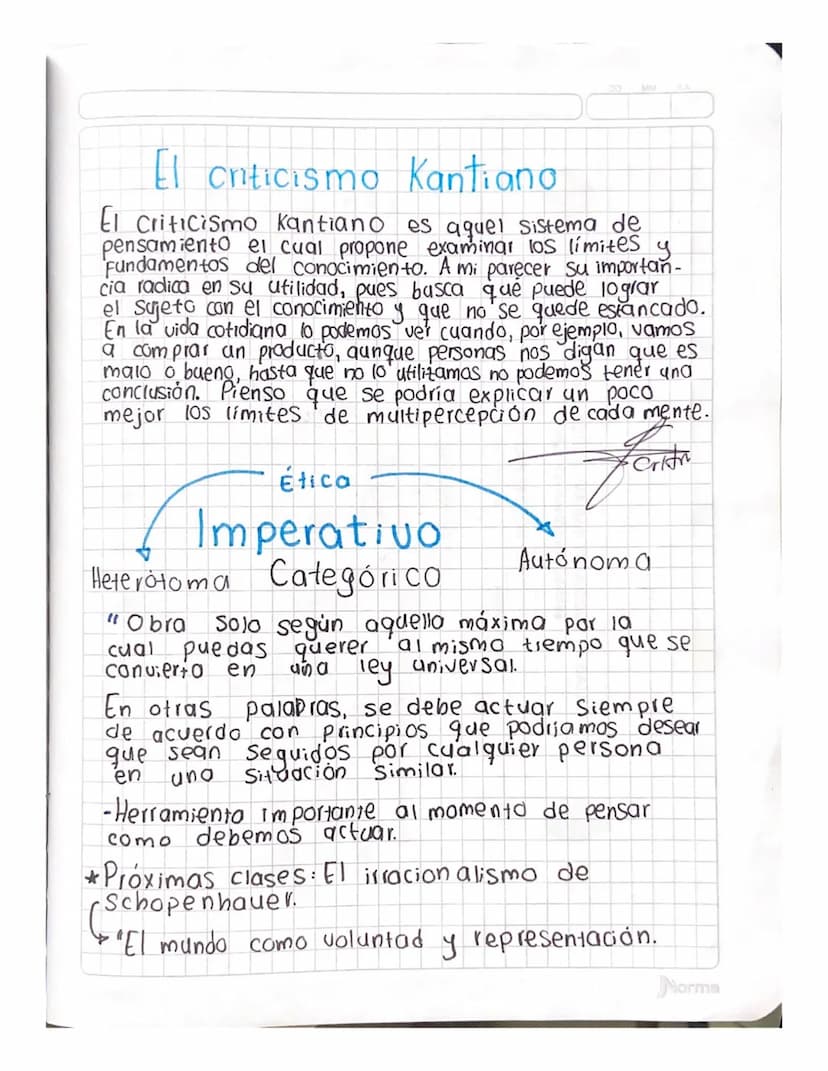 DD MM AA
El criticismo Kantiano
El Criticismo Kantiano es aquel sistema de
pensamiento el cual propone examinar los límites y
fundamentos del conocimiento. A mi parecer su importan-
cia radica en su utilidad, pues busca qué puede lograr
el sujeto con el conocimiento y que no se quede estancado.
En la vida cotidiana lo podemos ver cuando, por ejemplo, vamos
a comprar un producto, aunque personas nos digan que es
malo o bueno, hasta que no lo utilizamos no podemos tener una
conclusión. Pienso que se podría explicar un poco
mejor los límites de multipercepción de cada mente.
Ética
Imperativo
Autónoma
Heterótoma Categórico
"Obra solo según aquello máxima por la
cual puedas querer al mismo tiempo que se
convierta en una ley universal.
En otras palabras, se debe actuar siempre
de acuerdo con principios que podríamos desear
que sean seguidos por cualquier persona
en una situación similar.
-Herramienta importante al momento de pensar
como debemos actuar.
*Próximas clases: El irracionalismo de
Schopenhauer.
"El mundo como voluntad y representación.
Norma